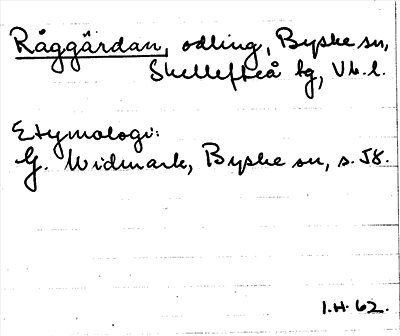 Råggärdan, odling, Byske sn,
Skellefteå tg, Vb. l.
Etymologi:
G. Widmark, Byske sn, s. 58.
I.H. 62.